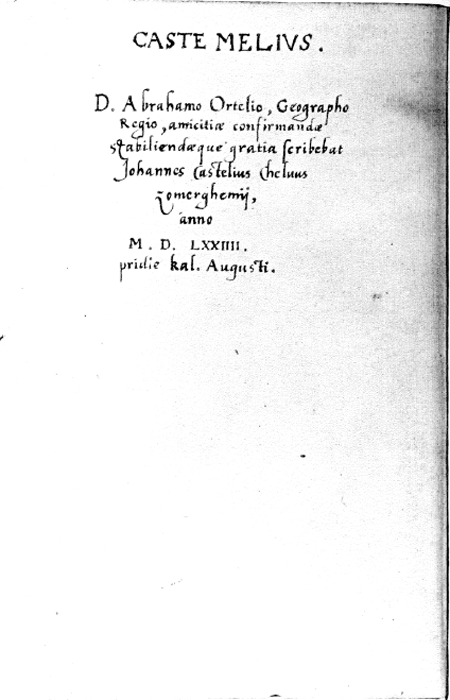 CASTE MELIVS.
D. Abrahamo Ortelio, Geographo
Regio, amicitiæ confirmandæ
stabiliendæque gratia scribebat
Johannes Castelius Cheluus
Zomerghemij,
anno
M. D. LXXIIII.
pridie kal. Augusti.